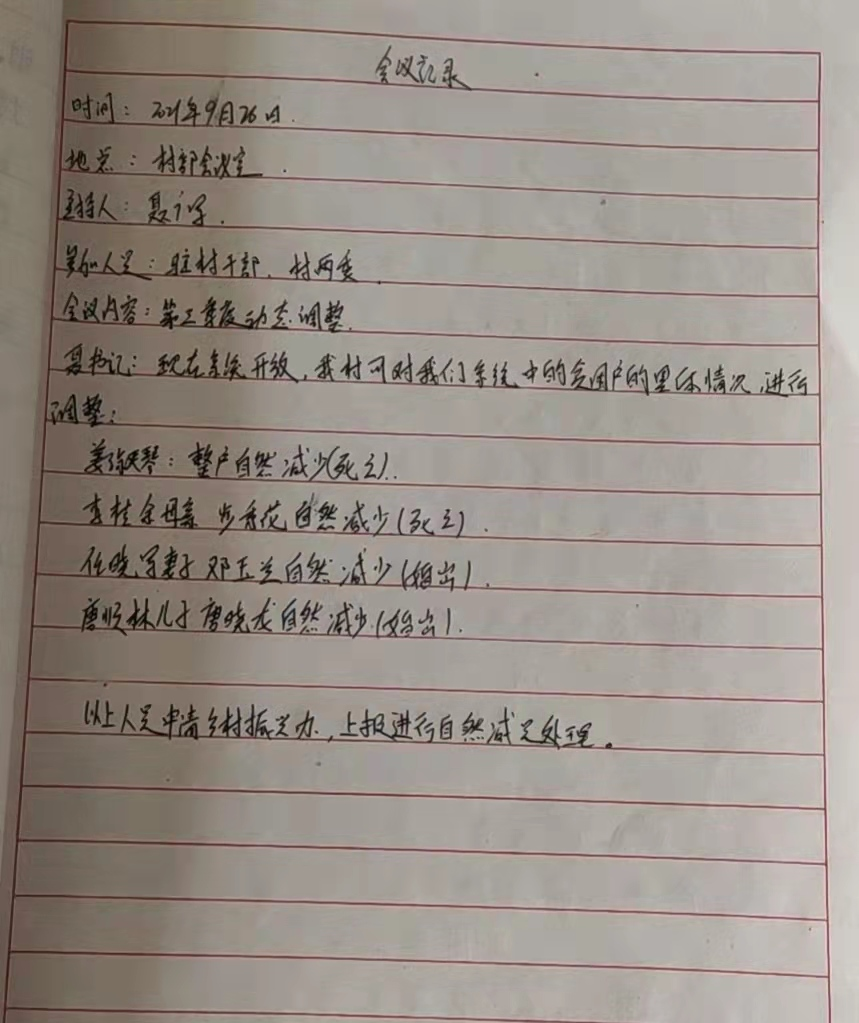 会议记录
时间：2021年9月26日.
地点：村部会议室.
主持人：聂
参加人员：驻村干部、村两委.
会议内容：第三季度动态调整.
聂书记：现在系统开放，我村可对我们系统中的贫困户的具体情况，进行
调整：
姜 琴：整户自然减少(死亡).
李桂 母亲 花自然减少(死亡).
任晓军妻子邓玉兰自然减少(婚出).
唐顺林儿子唐晓龙自然减少(婚出).
以上人员申请乡村振兴办，上报进行自然减员处理。